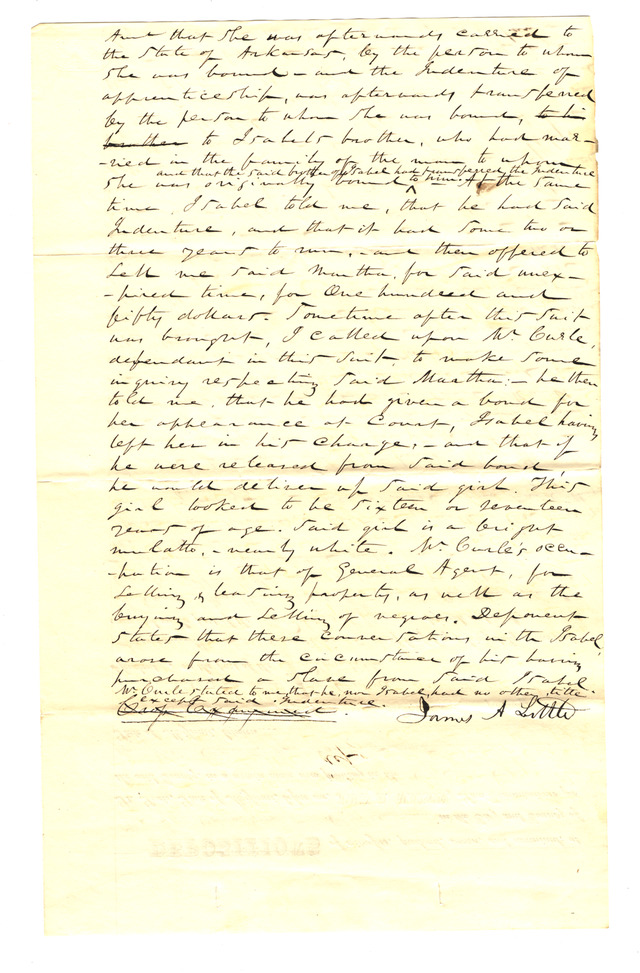 Aunt that she was afterwards carried to
the State of Arkansas, by the person to whom
she was bound – and the Indenture of
apprenticeship, was afterwards transferred
by the person to whom she was bound, to his
brother to Isabels brother, who had mar-
-ried in the family of the man to whom
and that the said brother of Isabel had transferred the Indenture
she was originally bound to him. At the same
time, Isabel told me, that he had said
Indenture, and that it had some two or
three years to run, – and then offered to
sell me said Martha, for said unex-
-pired time, for One hundred and
fifty dollars. Sometime after this suit
was brought, I called upon Mr. Curle,
defendant in this suit, to make some
inquiry respecting said Martha; – he then
told me, that he had given a bond for
her appearance at Court, Isabel having
left her in his charge, – and that if
he were released from said bond,
he would deliver up said girl. This
girl looked to be sixteen or seventeen
years of age. Said girl is a bright
mulatto, – nearly white. Mr. Curle's occu-
-pation is that of General Agent, for
selling & leasing property, as well as the
buying and selling of negroes. Deponent
states that these conversations with Isabel
arose from the circumstance of his having
purchased a slave from said Isabel
Mr. Curle stated to me, that he, nor Isabel had no other title
except said Indenture.
James A Little